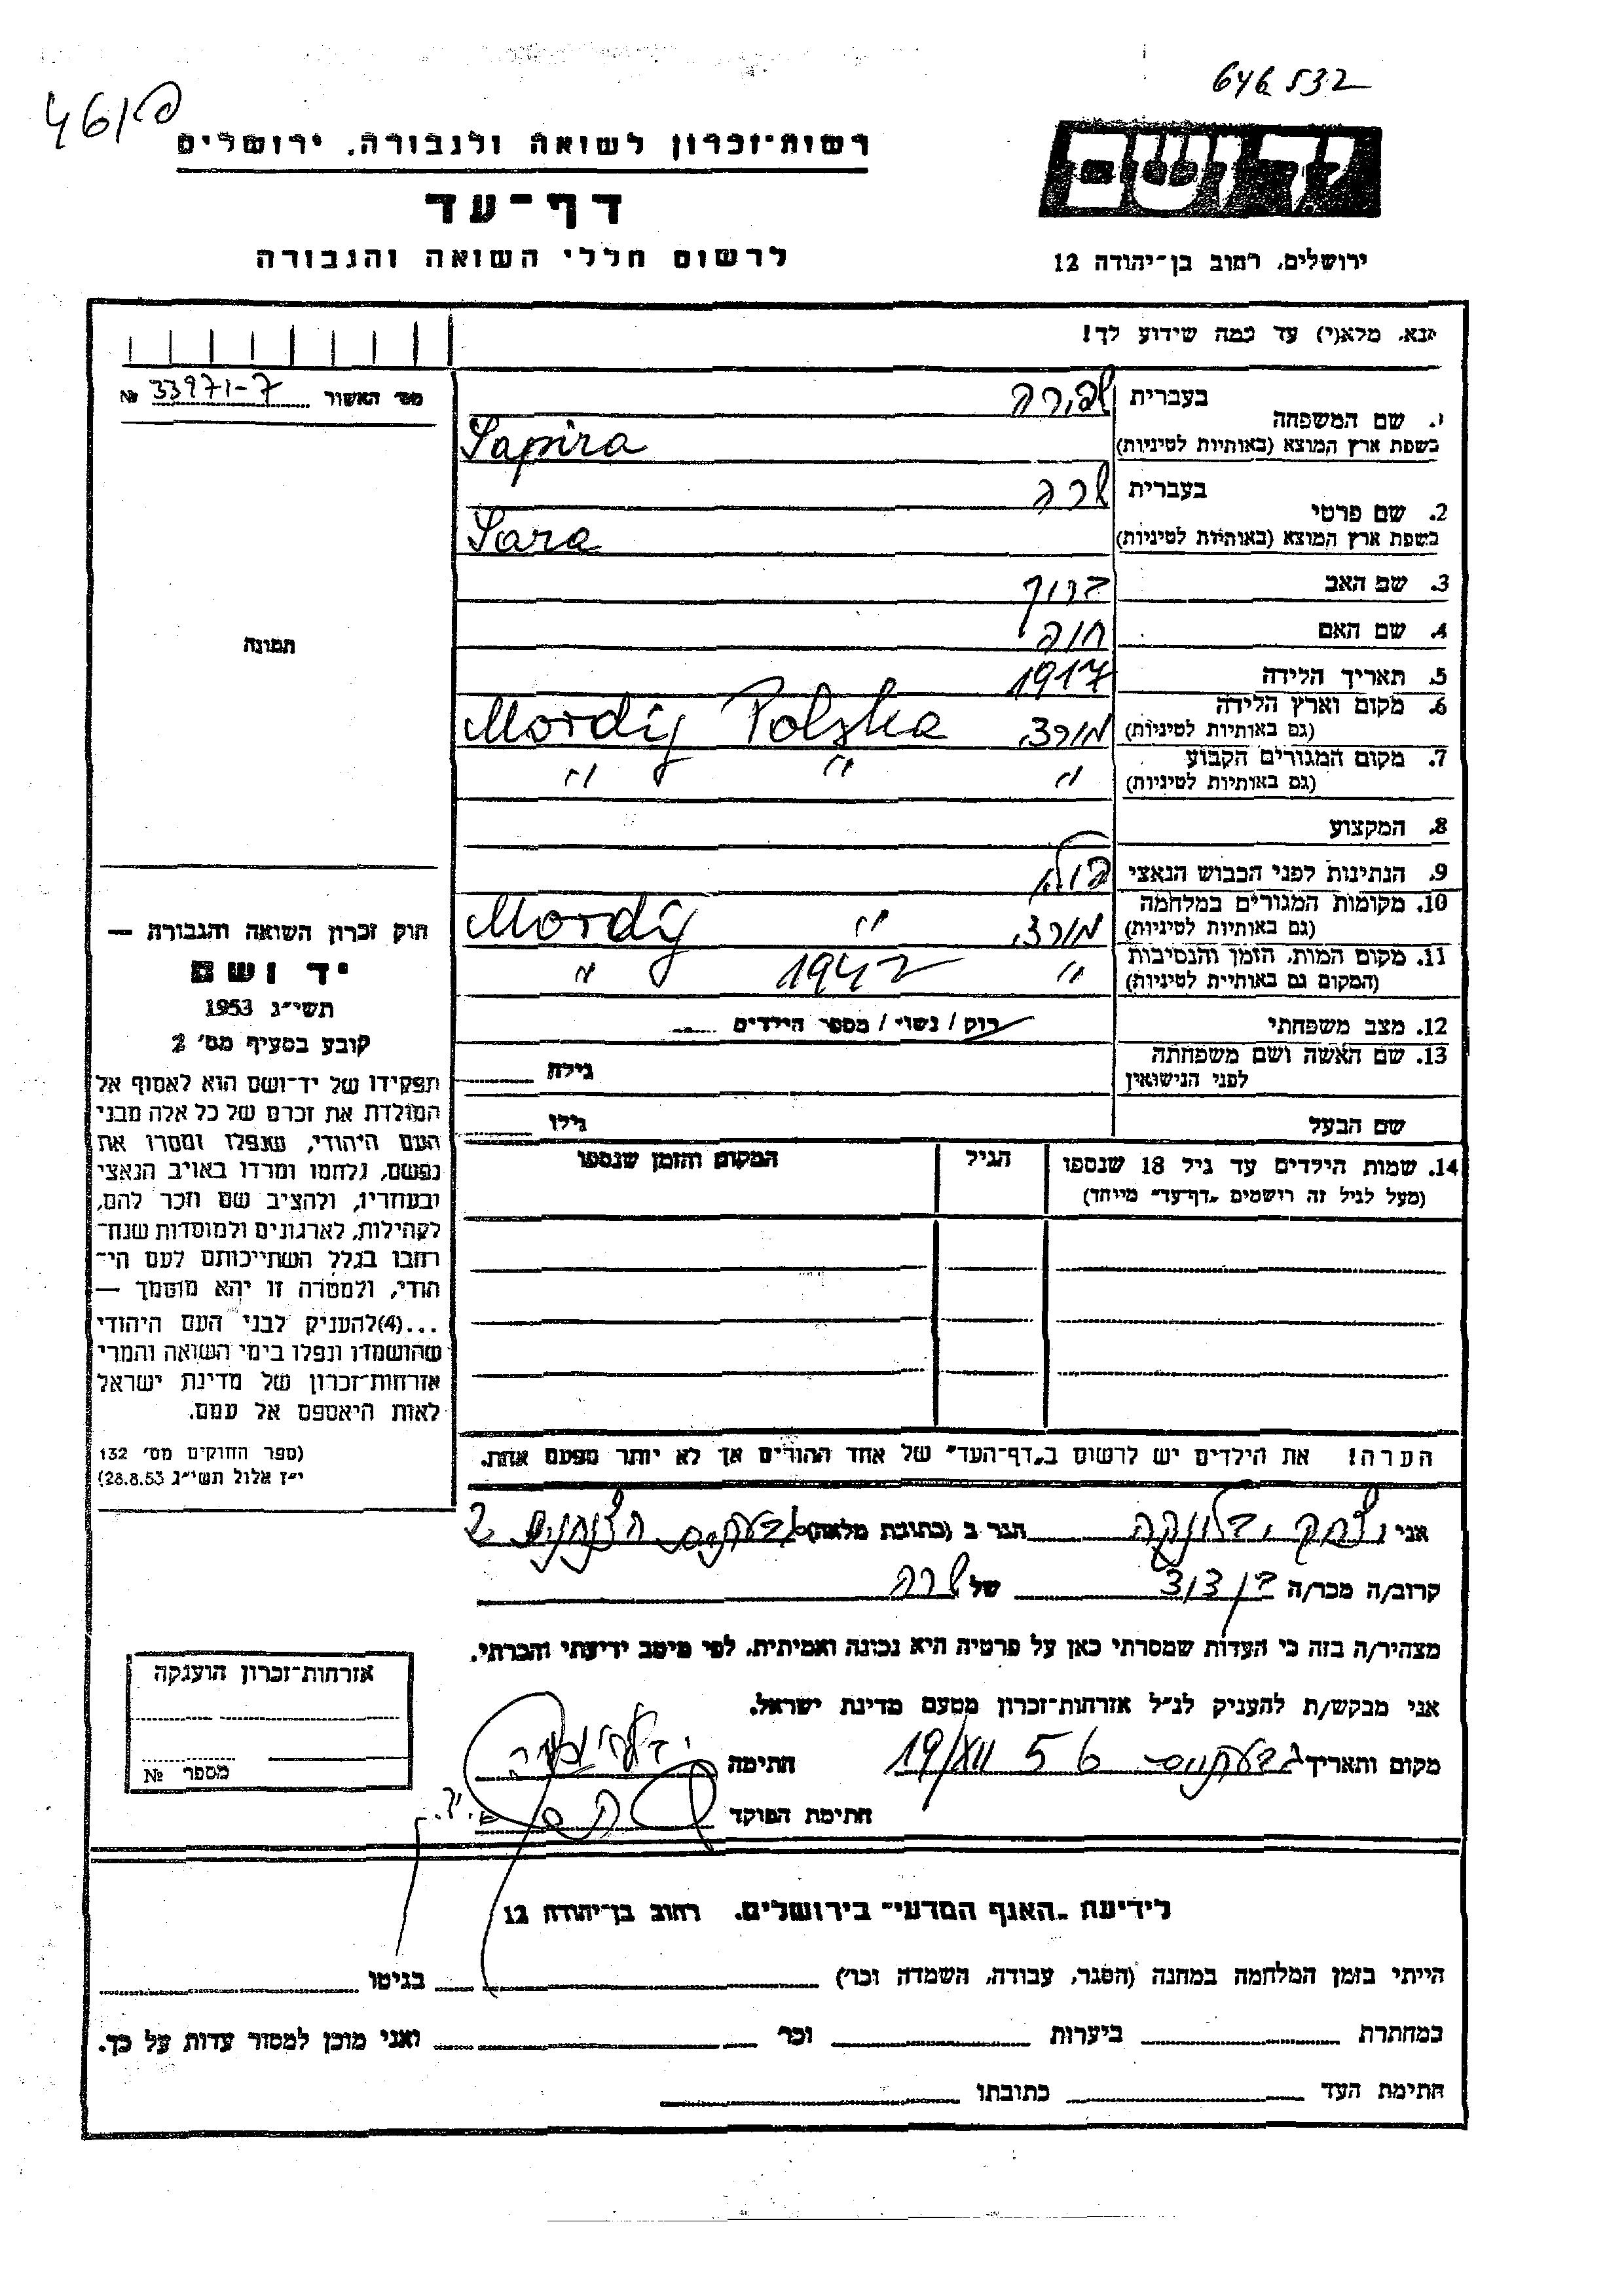 646532
461פ
רשות־זכרון לשואה ולגבורה, ירושלים
יד ושם
דף־עד
לרשום חללי השואה והגבורה
ירושלים, רחוב בן־יהודה 12
נא מלא(י) עד כמה שידוע לך!
מס׳ האשור 33971-7 №
1. שם המשפחה
בעברית שפירה
בשפת ארץ המוצא (באותיות לטיניות) Sapira
2. שם פרטי
בעברית שרה
בשפת ארץ המוצא (באותיות לטיניות) Sara
3. שם האב ברוך
4. שם האם חוה
5. תאריך הלידה 1917
6. מקום וארץ הלידה
(גם באותיות לטיניות) מורדי Mordy Polska
7. מקום המגורים הקבוע
(גם באותיות לטיניות) " " "
8. המקצוע
9. הנתינות לפני הכבוש הנאצי פולני
10. מקומות המגורים במלחמה
(גם באותיות לטיניות) מורדי " Mordy
11. מקום המות, הזמן והנסיבות
(המקום גם באותיות לטיניות) " 1942 "
12. מצב משפחתי רוק / נשוי / מספר הילדים
13. שם האשה ושם משפחתה
לפני הנישואין גילה
שם הבעל גילו
14. שמות הילדים עד גיל 18 שנספו הגיל המקום והזמן שנספו
(מעל לגיל זה רושמים „דף־עד״ מיוחד)
הערה! את הילדים יש לרשום ב„דף־העד״ של אחד ההורים אך לא יותר מפעם אחת.
תמונה
חוק זכרון השואה והגבורה —
יד ושם
תשי״ג 1953
קובע בסעיף מס׳ 2
תפקידו של יד־ושם הוא לאסוף אל
המולדת את זכרם של כל אלה מבני
העם היהודי, שנפלו ומסרו את
נפשם, נלחמו ומרדו באויב הנאצי
ובעוזריו, ולהציב שם וזכר להם,
לקהילות, לארגונים ולמוסדות שנח־
רבו בגלל השתייכותם לעם הי־
הודי, ולמטרה זו יהא מוסמך —
...(4)להעניק לבני העם היהודי
שהושמדו ונפלו בימי השואה והמרי
אזרחות־זכרון של מדינת ישראל
לאות היאספם אל עמם.
(ספר החוקים מס׳ 132
י״ז אלול תשי״ג 28.8.53)
אני יצחק הגר ב (כתובת מלאה) גבעתיים 2
קרוב/ה מכר/ה בן דוד של שרה
מצהיר/ה בזה כי העדות שמסרתי כאן על פרטיה היא נכונה ואמיתית, לפי מיטב ידיעתי והכרתי.
אני מבקש/ת להעניק לנ״ל אזרחות־זכרון מטעם מדינת ישראל.
מקום ותאריך גבעתיים 19/XII 56 חתימה
חתימת הפוקד
אזרחות־זכרון הוענקה
מספר №
לידיעת „האגף המדעי״ בירושלים, רחוב בן־יהודה 12
הייתי בזמן המלחמה במחנה (הסגר, עבודה, השמדה וכר׳) בגיטו
במחתרת ביערות וכר ואני מוכן למסור עדות על כך.
חתימת העד כתובתו